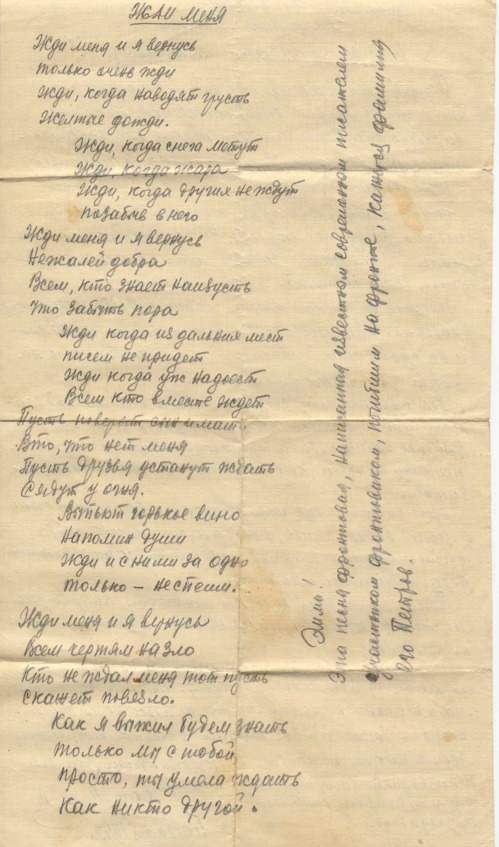 ЖДИ МЕНЯ
Жди меня и я вернусь
только очень жди
Жди, когда наводят грусть
Желтые дожди.
Жди, когда снега метут
Жди, когда жара
Жди, когда других не ждут
позабыв в него
Жди меня и я вернусь
Нежалей добра
Всем, кто знает наизусть
что забыть пора
Жди когда из дальних мест
писем не придет
Жди когда уж надоест
Всем кто вместе ждет
Пусть поверят сын и мать
В то, что нет меня
Пусть друзья устанут ждать
Сядут у огня.
Выпьют горькое вино
на помин души
Жди и с ними за одно
только – неспеши.
Жди меня и я вернусь
Всем чертям на зло
Кто не ждал меня тот пусть
скажет повезло.
Как я выжил будем знать
только мы с тобой,
просто, ты умела ждать
как никто другой.
Эмма!
Эта песня фронтовая, написанная известным современным писателем
участником фронтовиком, погибшим на фронте, кажется фамилия
его Петров.